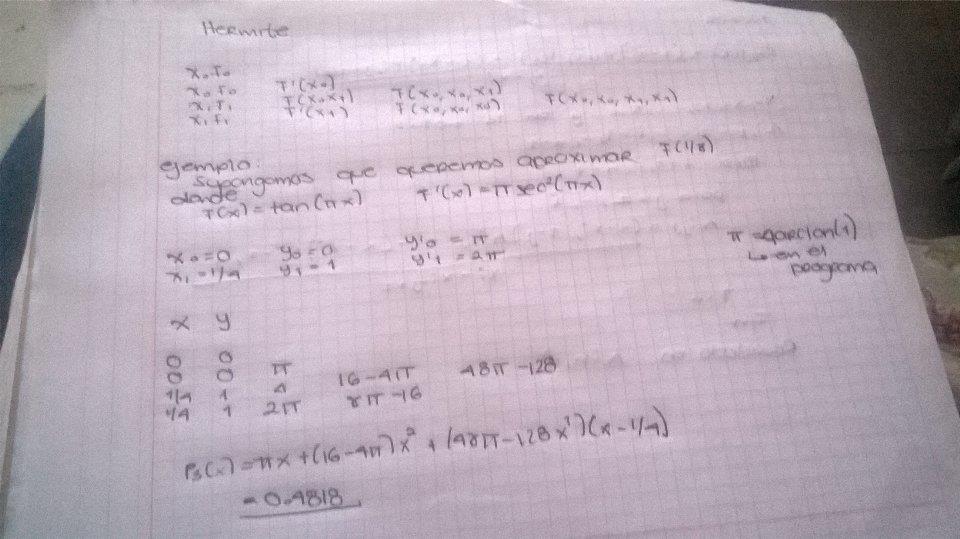 Hermite
x₀ F₀
x₀ F₀ F'(x₀)
x₁ F₁ F(x₀,x₁) F(x₀, x₀, x₁)
x₁ F₁ F'(x₁) F(x₀, x₀, x₁) F(x₀, x₀, x₁, x₁)
ejemplo:
supongamos que queremos aproximar F(1/8)
donde
F(x) = tan(πx) F'(x) = π sec²(πx)
x₀ = 0 y₀ = 0 y'₀ = π
x₁ = 1/4 y₁ = 1 y'₁ = 2π
π = 4arctan(1)
↳ en el
programa
x y
0 0
0 0 π
1/4 1 4 16-4π 48π-128
1/4 1 2π 8π-16
P₃(x) = πx + (16-4π)x² + (48π-128x²)(x-1/4)
= 0.4818